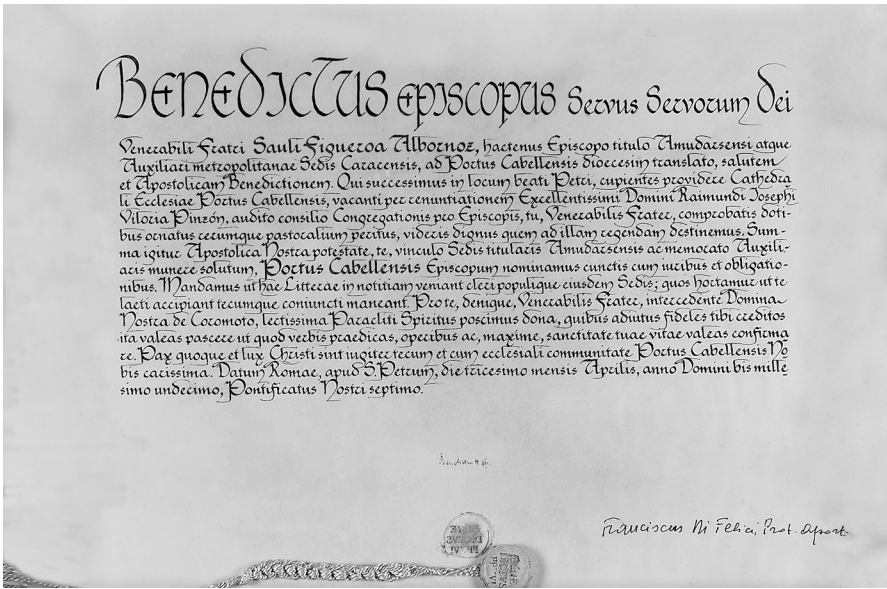 BENEDICTUS EPISCOPUS Servus Servorum Dei
Venerabili Fratri Sauli Figueroa Albornoz, hactenus Episcopo titulo Amudarsensi atque
Auxiliari metropolitanae Sedis Caracensis, ad Portus Cabellensis dioecesim translato, salutem
et Apostolicam Benedictionem. Qui successimus in locum beati Petri, cupientes providere Cathedra
li Ecclesiae Portus Cabellensis, vacanti per renuntiationem Excellentissimi Domini Raimundi Iosephi
Viloria Pinzón, audito consilio Congregationis pro Episcopis, tu, Venerabilis Frater, comprobatis doti-
bus ornatus rerumque pastoralium peritus, videris dignus quem ad illam regendam destinemus. Sum-
ma igitur Apostolica Nostra potestate, te, vinculo Sedis titularis Amudarsensis ac memorato Auxili-
aris munere solutum, Portus Cabellensis Episcopum nominamus cunctis cum iuribus et obligatio-
nibus. Mandamus ut hae Litterae in notitiam veniant cleri populique eiusdem Sedis; quos hortamur ut te
laeti accipiant tecumque coniuncti maneant. Pro te, denique, Venerabilis Frater, intercedente Domina
Nostra de Coromoto, lectissima Paracliti Spiritus poscimus dona, quibus adiutus fideles tibi creditos
ita valeas pascere ut quod verbis praedicas, operibus ac, maxime, sanctitate tuae vitae valeas confirma
re. Pax quoque et lux Christi sint iugiter tecum et cum ecclesiali communitate Portus Cabellensis No
bis carissima. Datum Romae, apud S. Petrum, die tricesimo mensis Aprilis, anno Domini bis mille
simo undecimo, Pontificatus Nostri septimo.
Franciscus Di Felici, Prot. Apost.